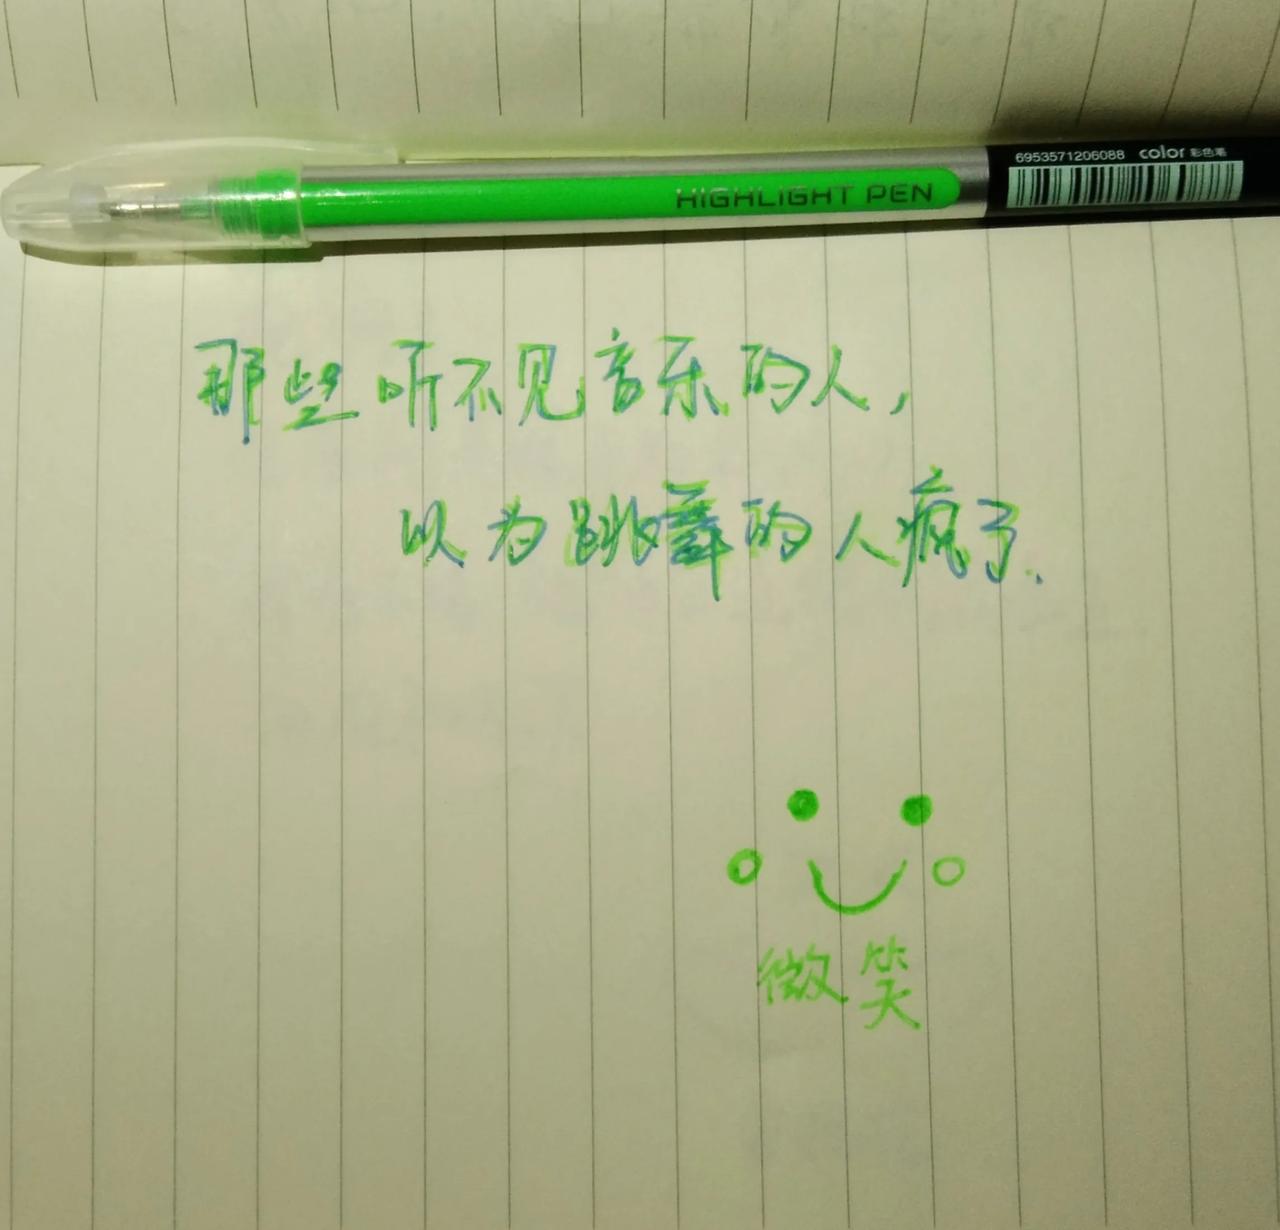 6953571206088 color 彩色笔
HIGHLIGHT PEN
那些听不见音乐的人,
以为跳舞的人疯了.
微笑